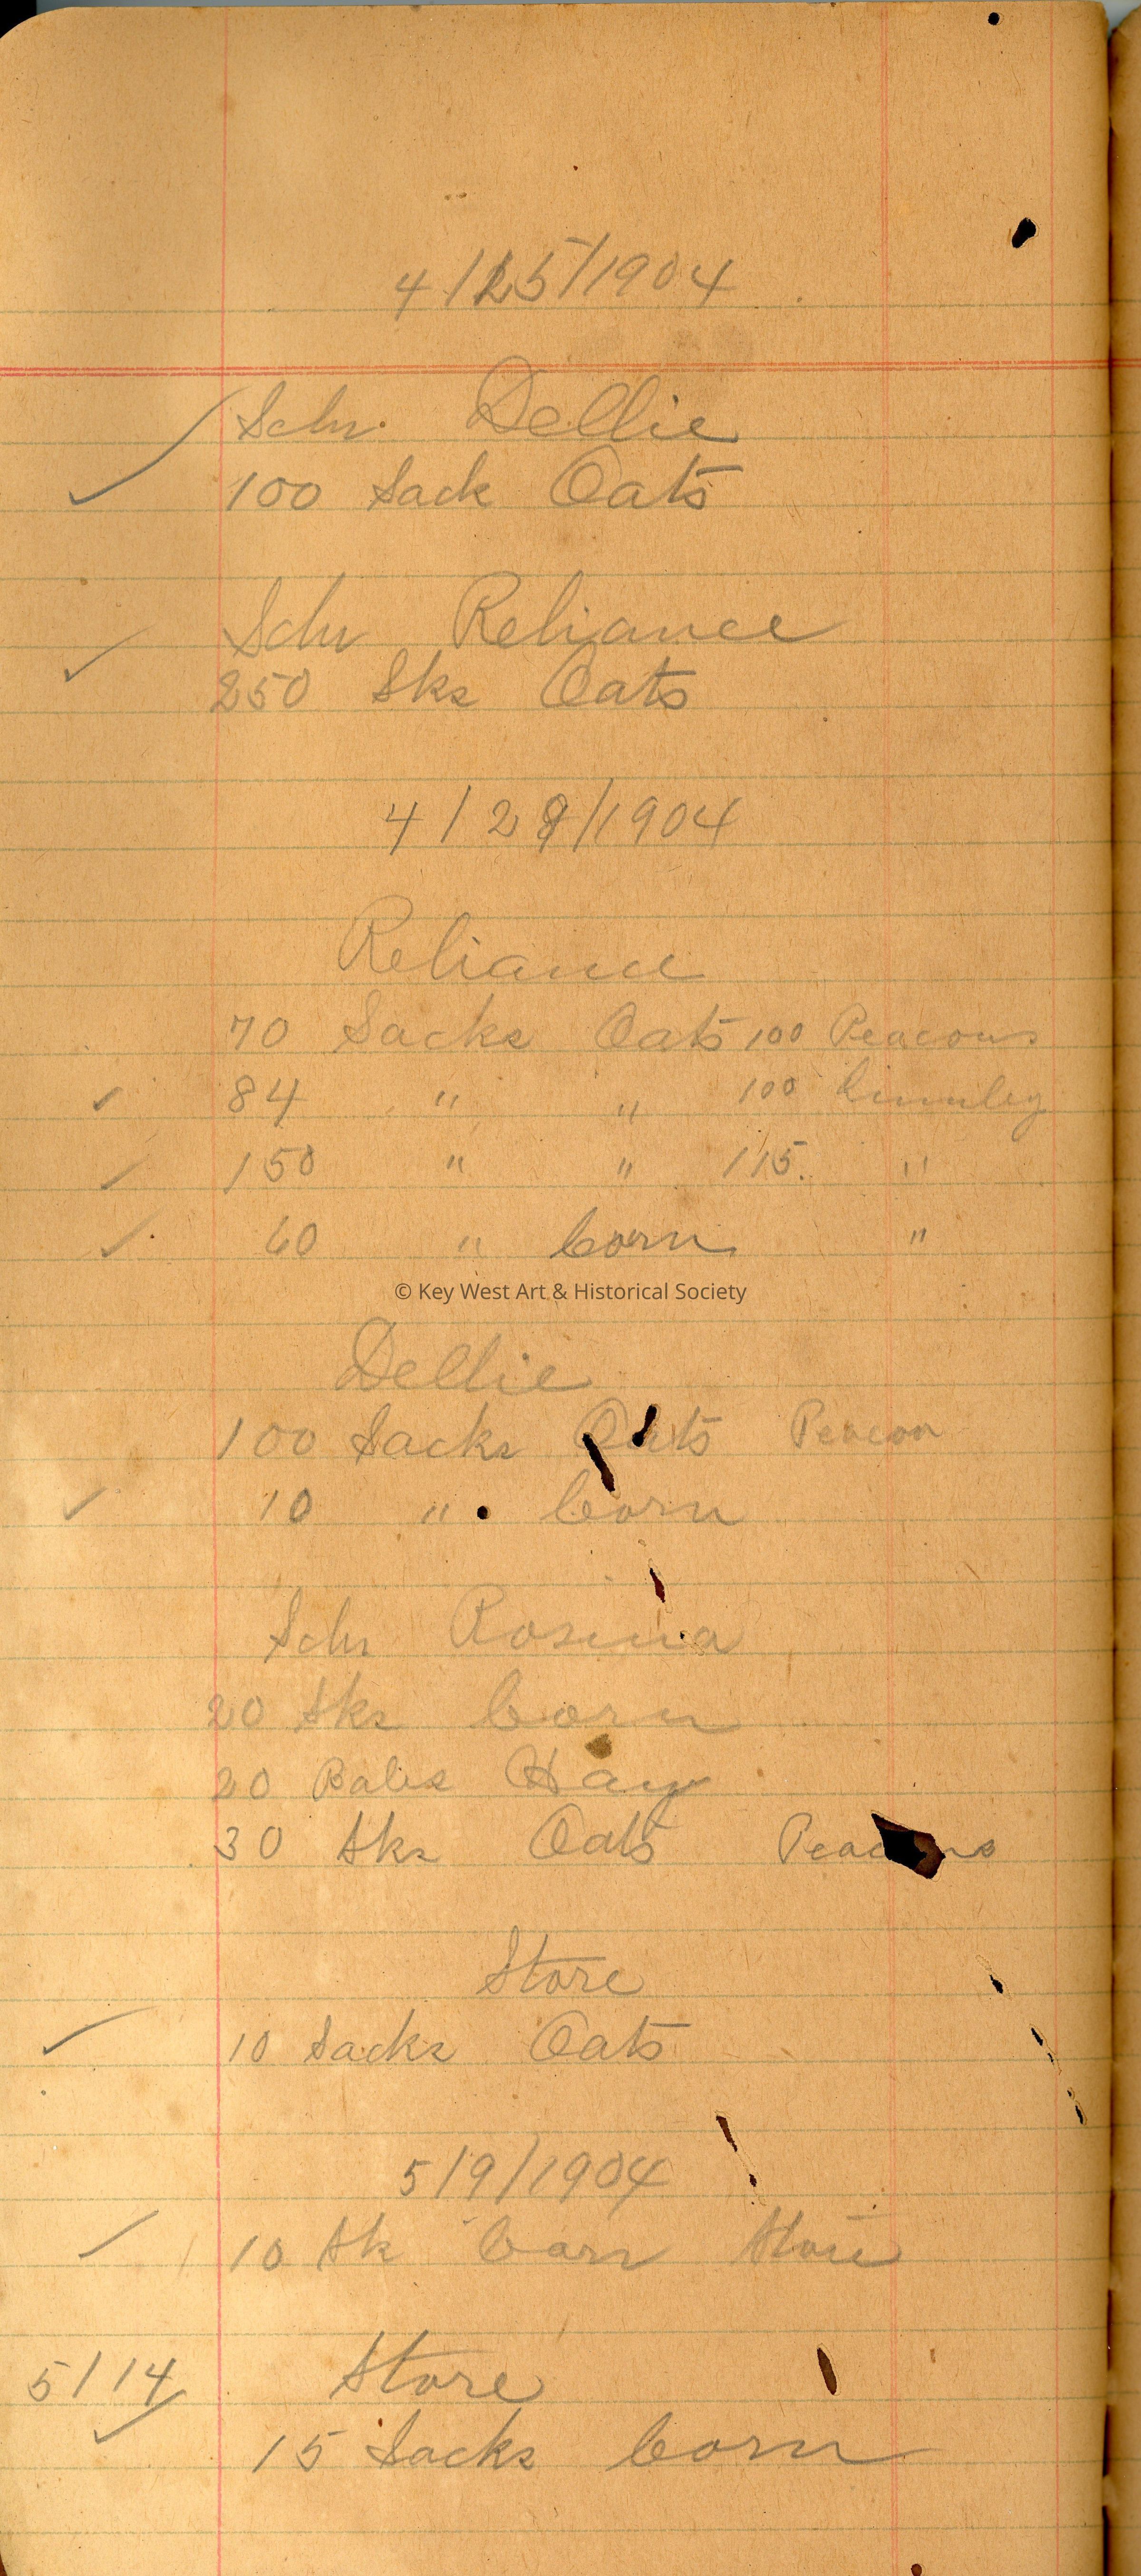 4/25/1904
Schr. Dellie
100 Sack Oats
Schr Reliance
250 Sks Oats
4/29/1904
Reliance
70 Sacks Oats 100 Peacons
84 " " 100
150 " " 115. "
60 " Corn "
© Key West Art & Historical Society
Dellie
100 Sacks Oats Peacon
10 " Corn
Schr Rosina
20 Sks Corn
20 Bales Hay
30 Sks Oats Peacons
Store
10 Sacks Oats
5/9/1904
10 Sk Corn Store
5/14 Store
15 Sacks Corn